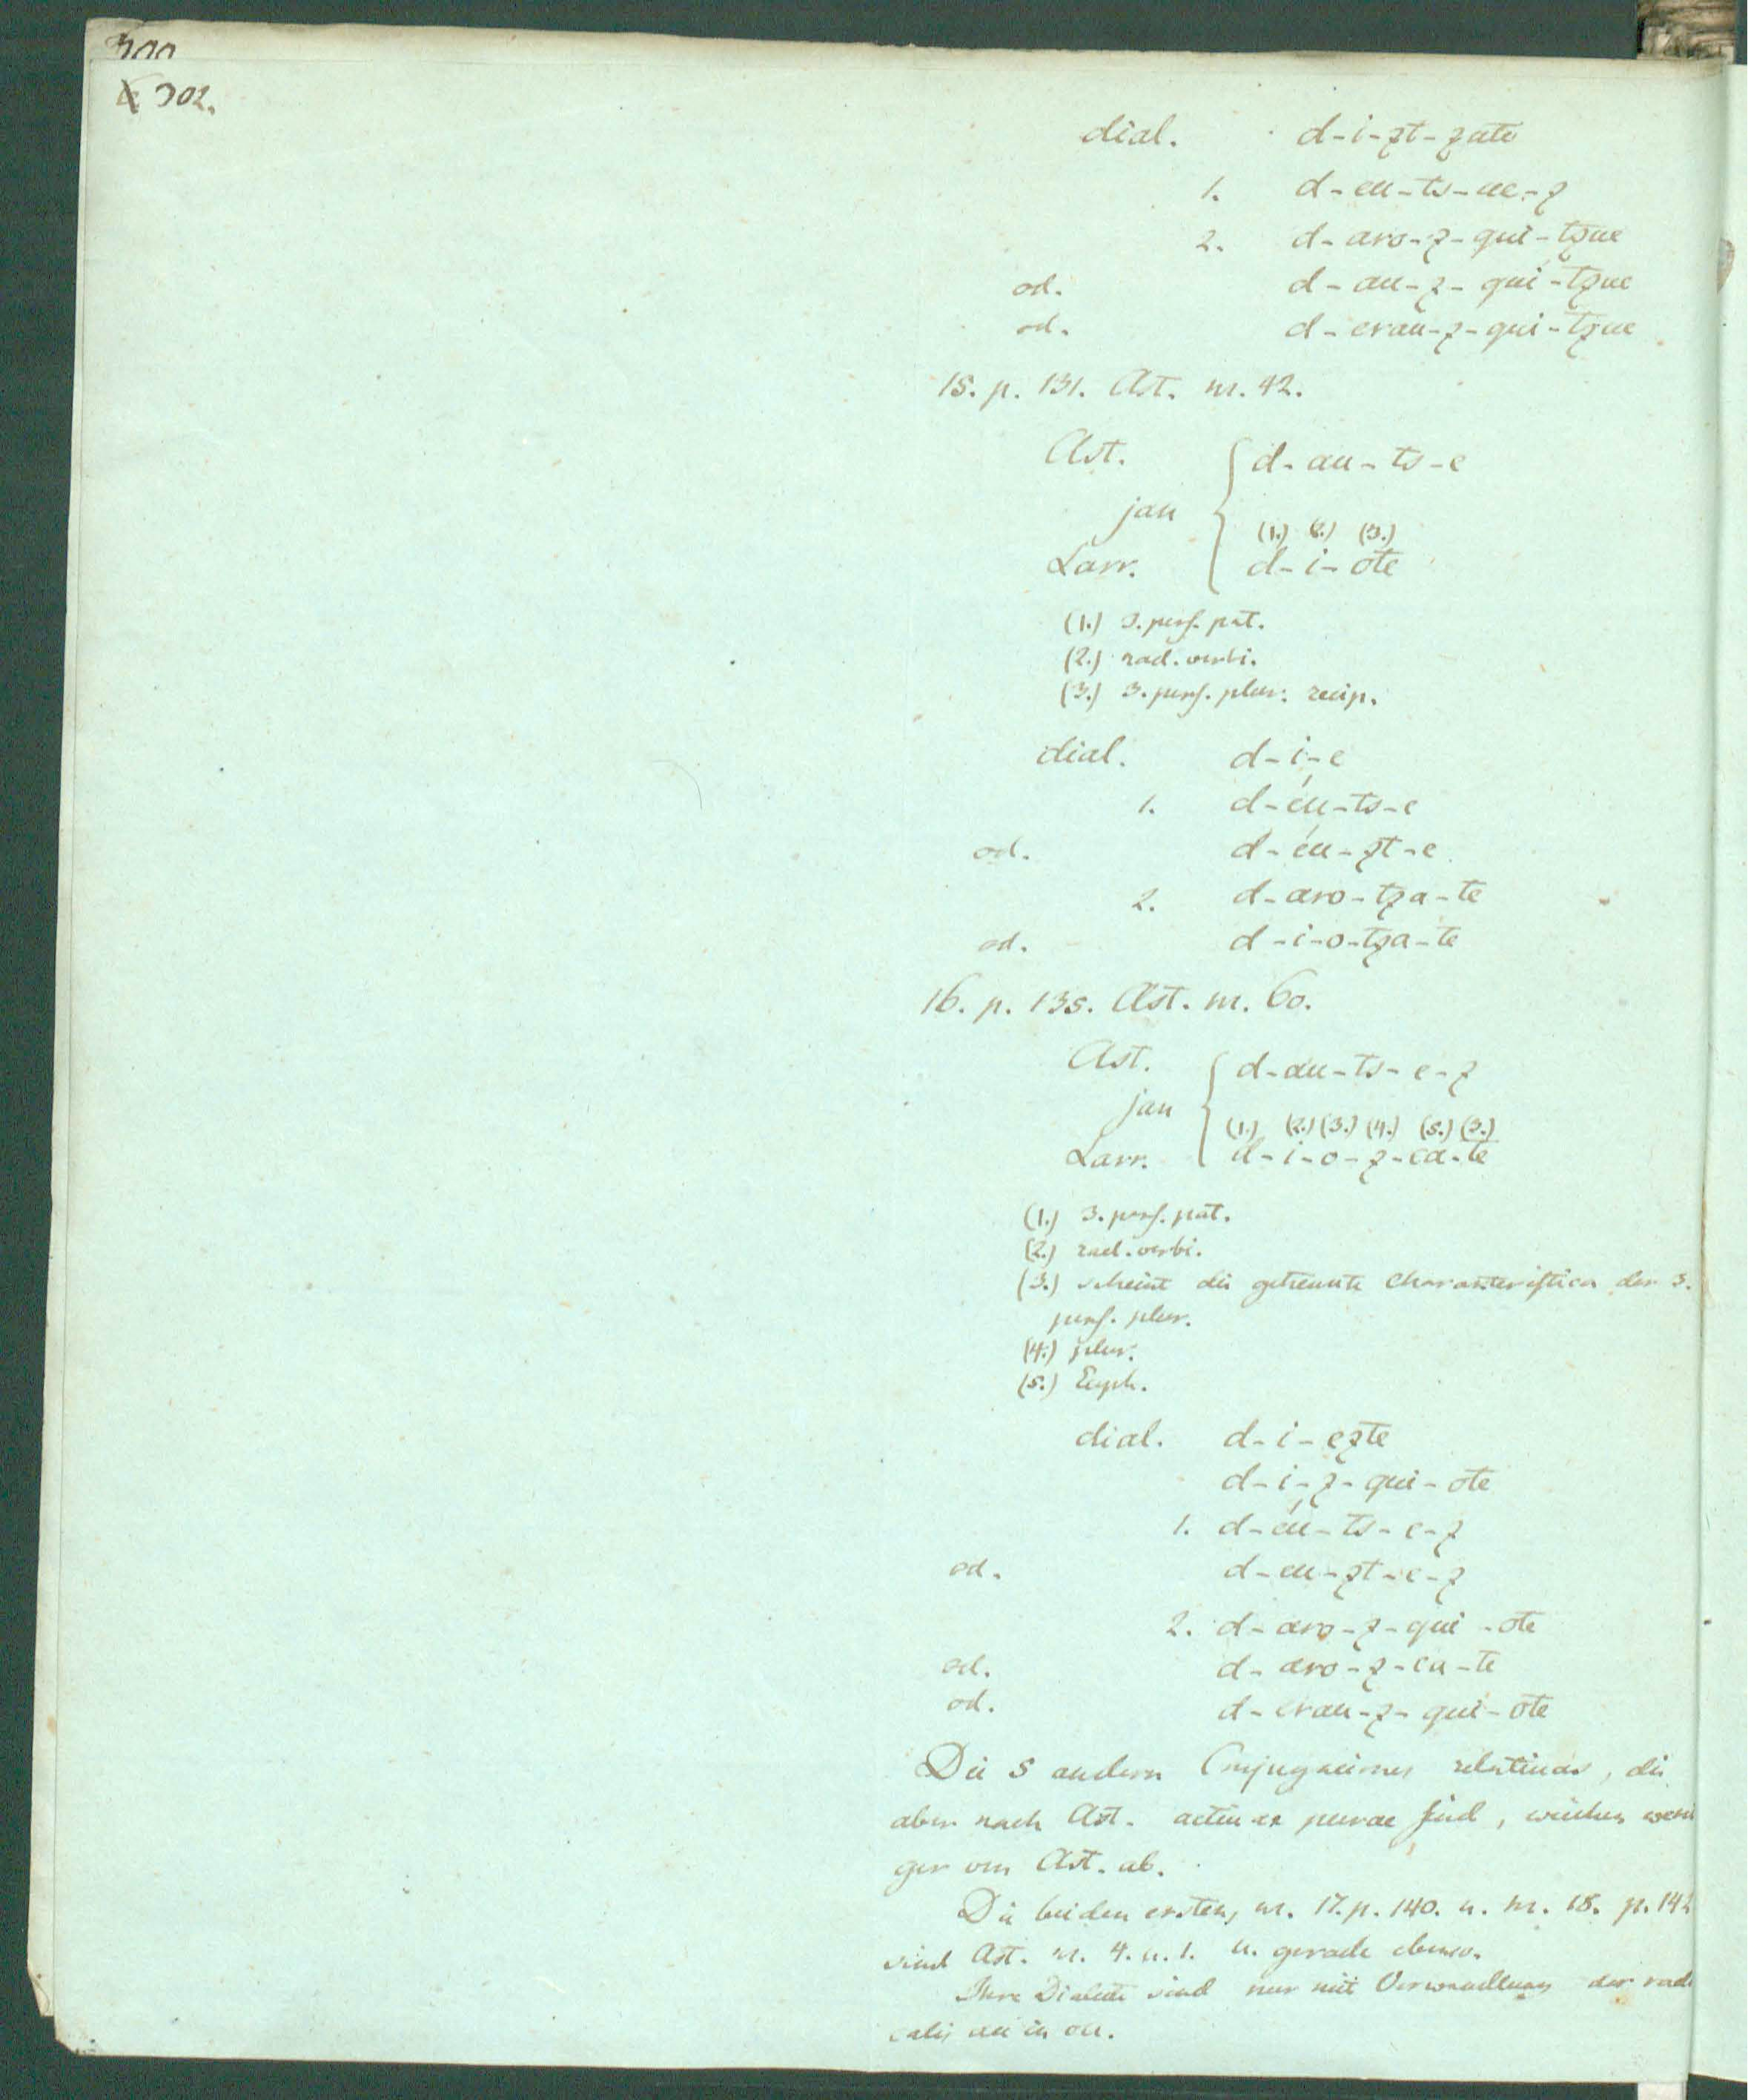 300
302.
dial. d-i-zt-zate
1. d-eu-ts-ue-z
2. d-aro-z-qui-tzue
od. d-au-z-qui-tzue
od. d-erau-z-qui-tzue
15. p. 131. Ast. nr. 42.
Ast. d-au-ts-e
jan
(1.) (2.) (3.)
Larr. d-i-ote
(1.) 3. pers. pat.
(2.) rad. verbi.
(3.) 3. pers. plur. recip.
dial. d-i-e
1. d-éu-ts-e
od. d-éu-zt-e
2. d-aro-tza-te
od. d-i-o-tza-te
16. p. 135. Ast. nr. 60.
Ast. d-au-ts-e-z
jan
(1.) (2.) (3.) (4.) (5.) (3.)
Larr. d-i-o-z-ca-te
(1.) 3. pers. pat.
(2.) rad. verbi.
(3.) scheint die getrennte Characteristica der 3.
pers. plur.
(4.) plur.
(5.) Euph.
dial. d-i-ezte
d-i-z-qui-ote
1. d-éu-ts-e-z
od. d-eu-zt-e-z
2. d-aro-z-qui-ote
od. d-aro-z-ca-te
od. d-erau-z-qui-ote
Die 5 andern Conjugaciones relativas, die
aber nach Ast. activae purae sind, weichen weni
ger von Ast. ab.
Die beiden ersten, nr. 17. p. 140. u. nr. 18. p. 142
sind Ast. nr. 4. u. 1. u. gerade ebenso.
Ihre Dialecte sind nur mit Verwandlung der radi
calis au in ou.